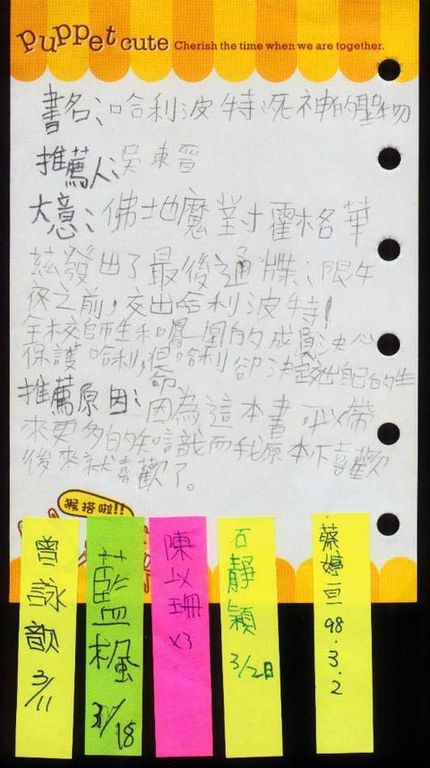 Puppet cute Cherish the time when we are together.
書名:哈利波特:死神的聖物
推薦人:吳東晉
大意:佛地魔對霍格華
茲發出了最後通牒:限午
夜之前,交出哈利波特!
全校師生和鳳凰的成員決心
保護哈利,但哈利卻決定交出自己的生
命
推薦原因:因為這本書可以帶
來更多的知識而我原本不喜歡
後來就喜歡了。
猴搭啦!!
曾詠歆 3/11
藍楓 3/18
陳以珊 x3
石靜穎 3/2日
蔡婷亘 98.3.2